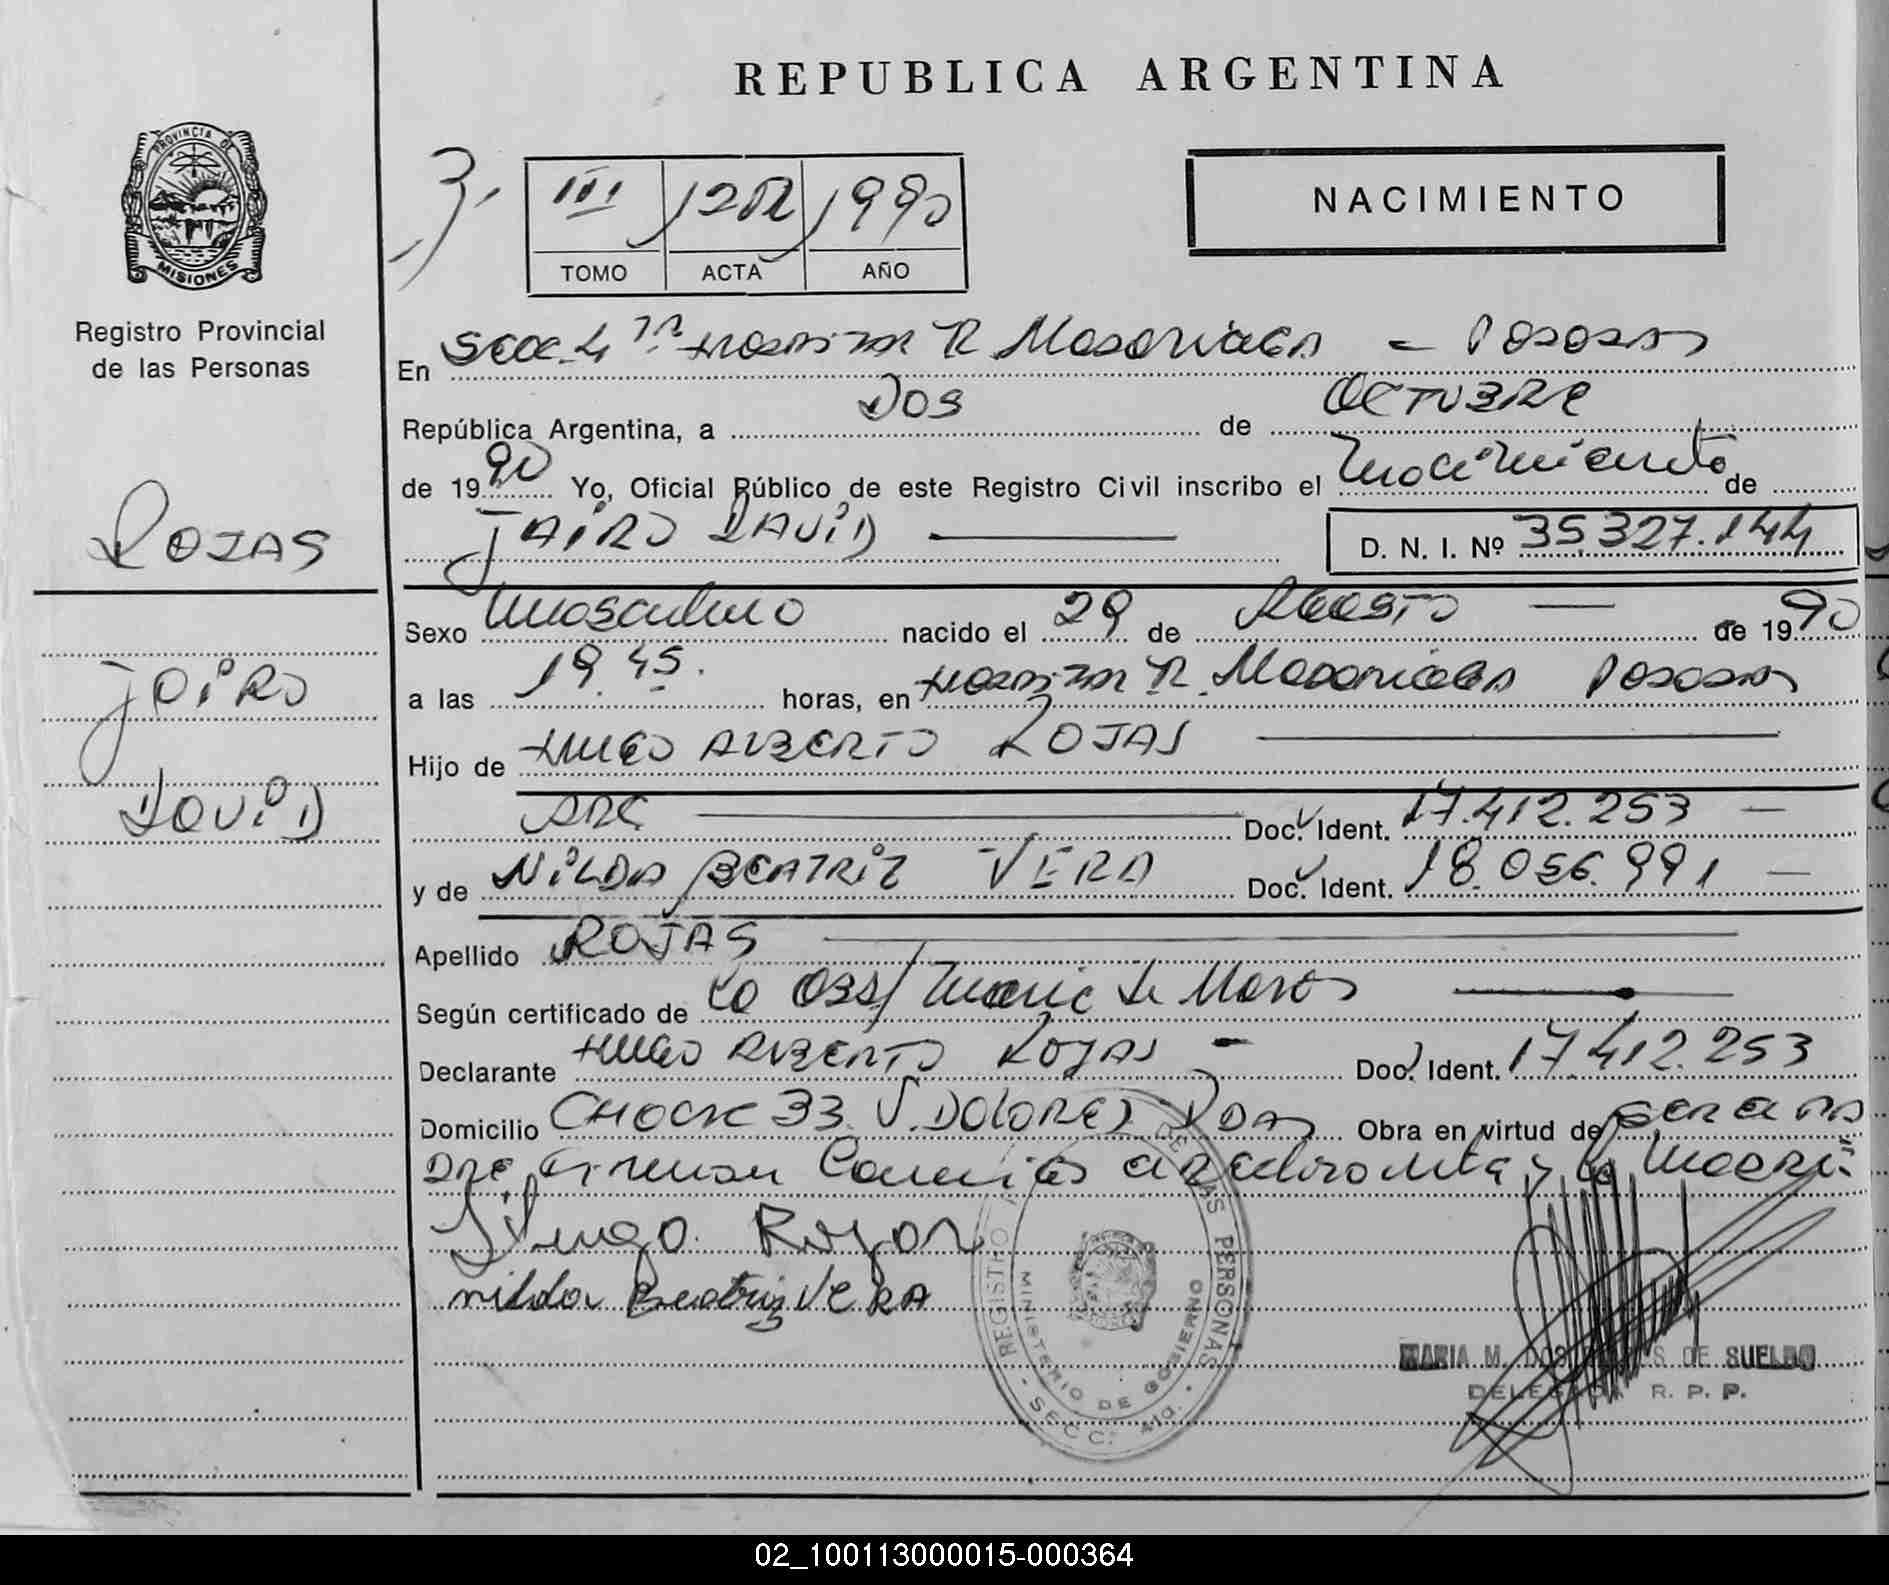 REPUBLICA ARGENTINA
PROVINCIA DE
MISIONES
Registro Provincial
de las Personas
ROJAS
JAIRO
DAVID
3
III 1990
TOMO ACTA AÑO
NACIMIENTO
En Secc. 4 ta Hospital R. Madariaga - Posadas
República Argentina, a DOS de OCTUBRE
de 1990 Yo, Oficial Público de este Registro Civil inscribo el Nacimiento de
JAIRO DAVID D. N. I. Nº 35.327.144
Sexo Masculino nacido el 29 de AGOSTO de 1990
a las 19.45. horas, en Hospital R. Madariaga Posadas
Hijo de HUGO ALBERTO ROJAS
ARG. Doc. Ident. 17.412.253
y de NILDA BEATRIZ VERA Doc. Ident. 18.056.991
Apellido ROJAS
Según certificado de La Obst/
Declarante HUGO ALBERTO ROJAS - Doc. Ident. 17.412.253
Domicilio 33 V. DOLORES Pdas Obra en virtud de
firman la Madre
Hugo Rojas
nilda Beatriz VERA
REGISTRO DE LAS PERSONAS
MINISTERIO DE GOBIERNO
- SECC. 4ta. -
MARIA M. DOS DE SUELDO
DELEGADA R. P. P.
02_100113000015-000364